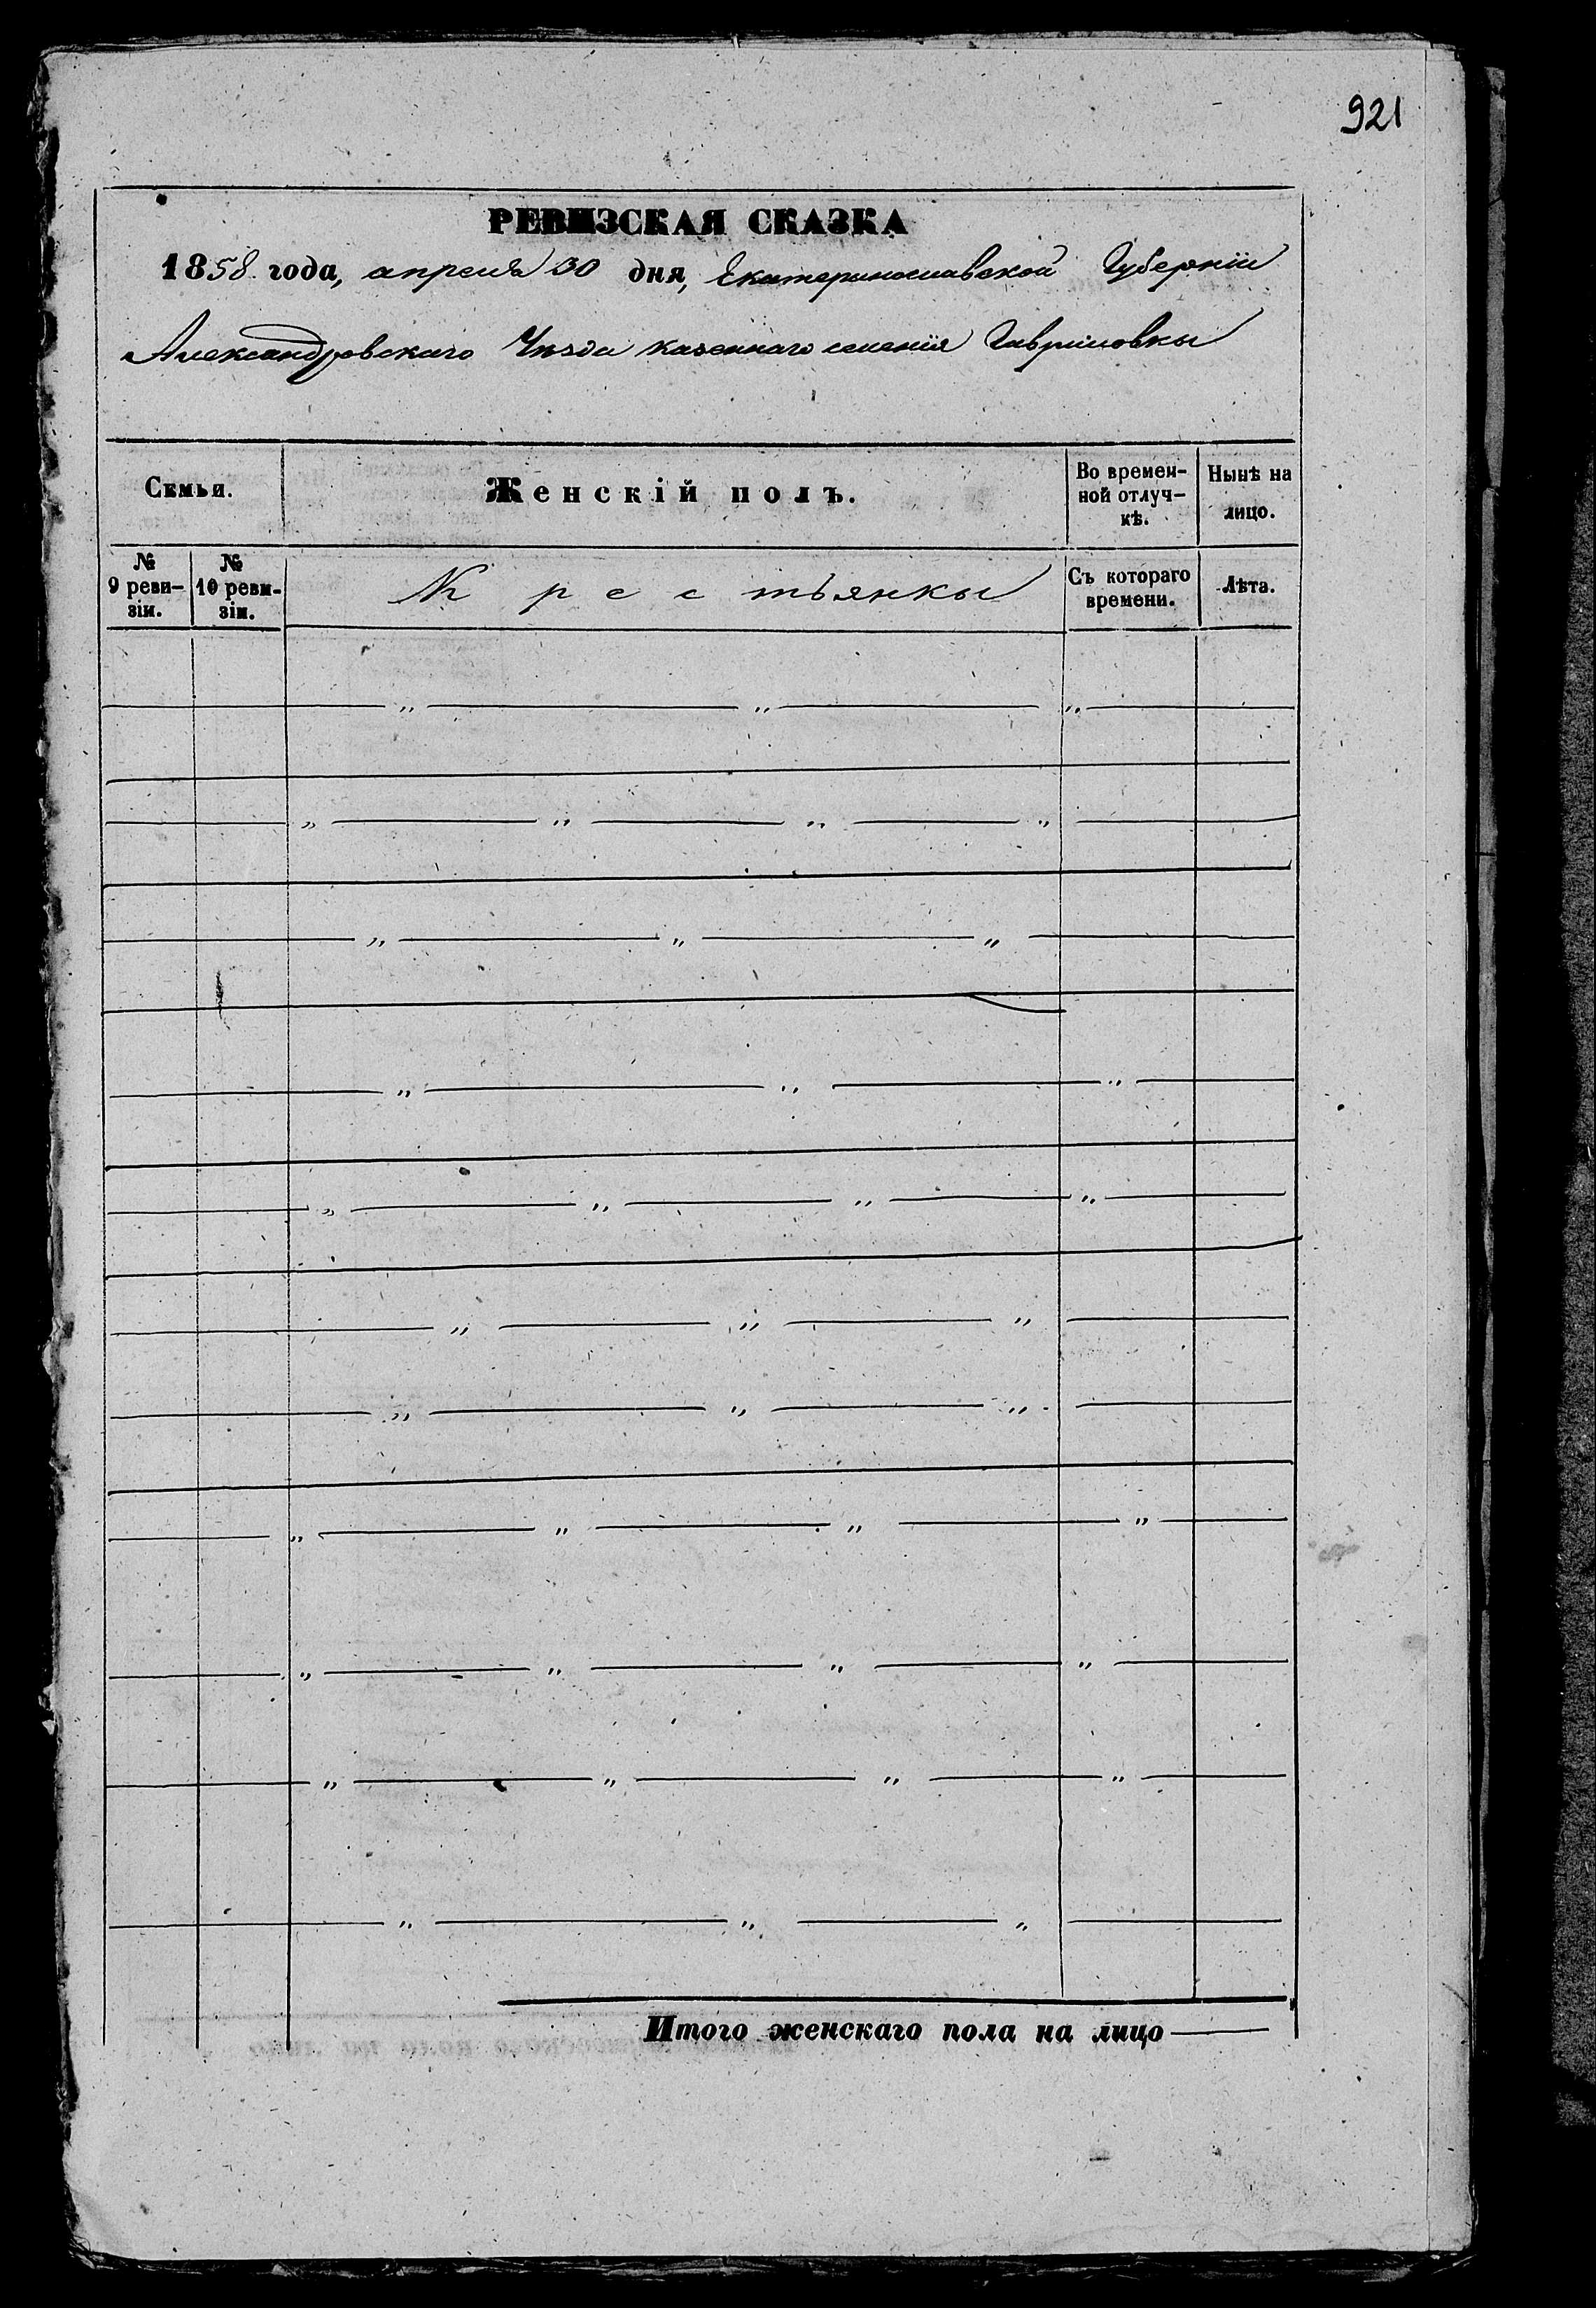 921
РЕВИЗСКАЯ СКАЗКА
1858 года, апреля 30 дня, Екатеринославской Губернiи
Александровскаго Уѣзда казеннаго селенiя Гавриловки
Семьи.
Женскiй полъ.
Во времен-
ной отлуч-
кѣ.
Нынѣ на
лицо.
№
9 реви-
зiи.
№
10 реви-
зiи.
Крестьянки
Съ котораго
времени.
Лѣта.
Итого женскаго пола на лицо —